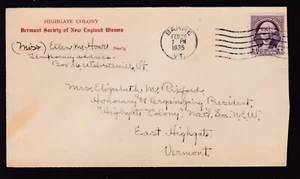 HIGHGATE COLONY
Vermont Society of New England Women
(Miss) Ellen M. Howe, Sec'y
Temporary address -
Box 24 Websterville, Vt.
BARRE
FEB 28
7 PM
1935
VT.
Mrs. Elizabeth M. Rixford
Honorary & Organizing President,
"Highgate Colony," Nat'l. Soc. N.E.W.
East Highgate,
Vermont.